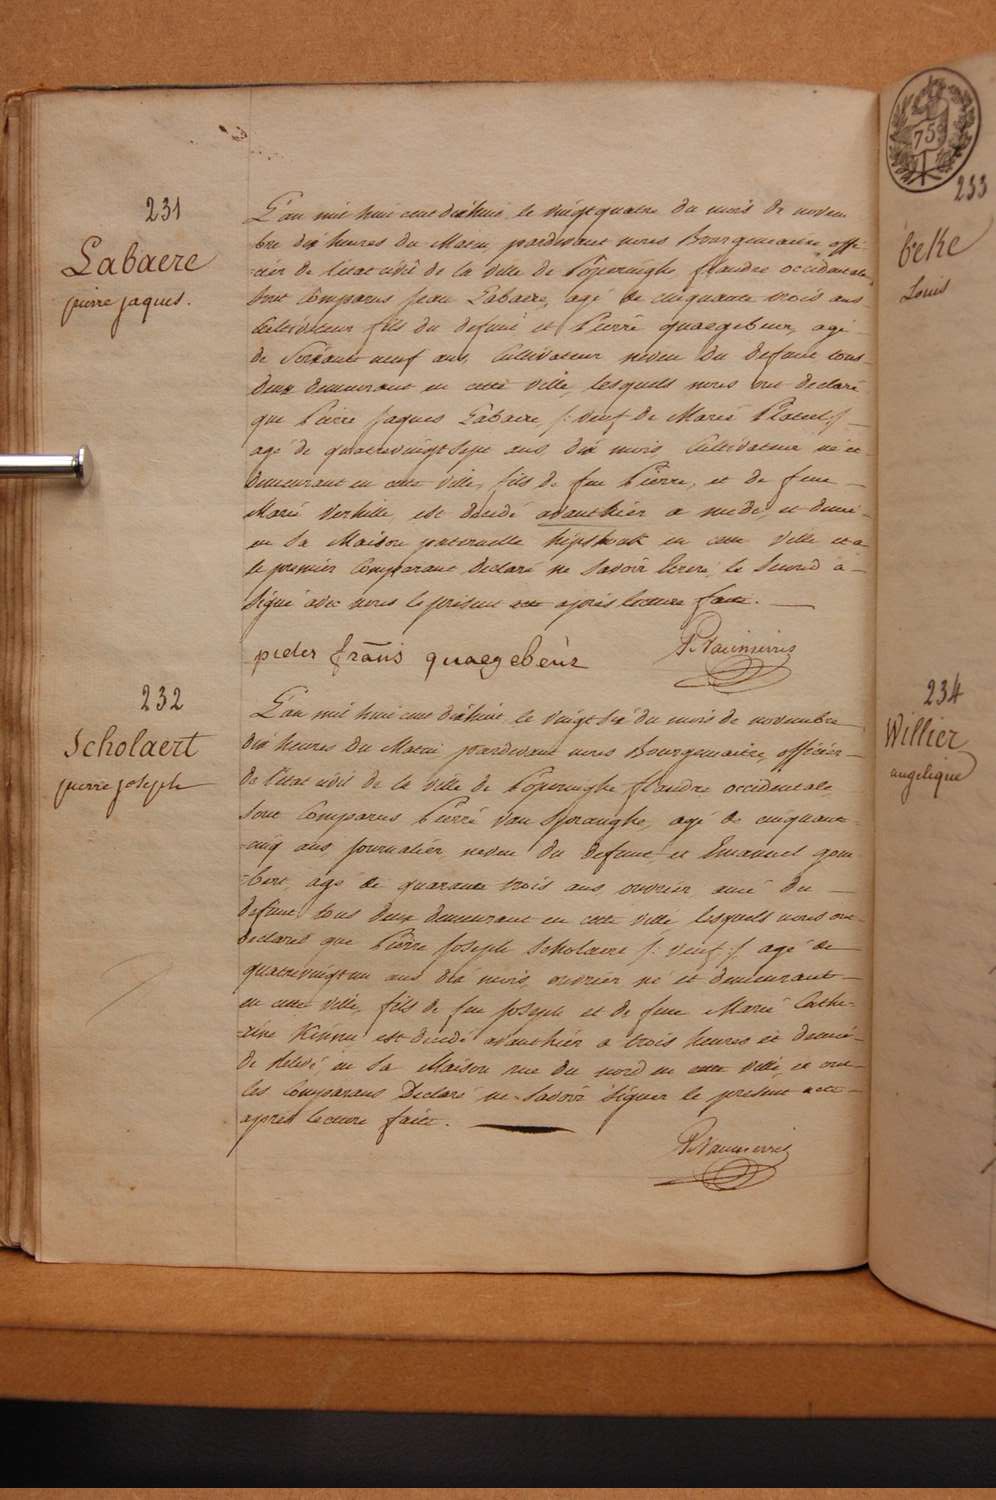 231
Labaere
pierre jaques.
L'an mil huit cent dixhuit, le vingtquatre du mois de novem
bre dix heures du Matin, pardevant nous Bourgemaitre offi-
-cier de l'état civil de la ville de Poperinghe flandre occidentale,
sont Comparus jean Labaere, agé de cinquante trois ans
Cultivateur fils du defunt et Pierre quaegebeur, agé
de Soixante neuf ans, Cultivateur neveu du defunt tous-
deux demeurant en cette ville, lesquels nous ont declaré
que Pierre jaques Labaere /: veuf de Marie :/
agé de quatrevingtsept ans, dix mois, Cultivateur né et
demeurant en cette ville, fils de feu Pierre, et de feue
Marie Verhille, est decidé avanthier a midi, et demi-
en sa Maison paternelle en cette ville et a
le premier Comparant declaré ne savoir Ecrire, le second à
signé avec nous le présent acte après lecture faite.
pieter frāns quaegebeùr
232
Scholaert
pierre joseph
L'an mil huit cent dixhuit, le vingt six du mois de novembre
dix heures du Matin pardevant nous Bourgemaitre, officier-
de l'état civil de la ville de Poperinghe flandre occidentale,
sont Comparus Pierre Van Spranghe, agé de cinquant-
-cinq ans, journalier, neveu du defunt, et Emanuel gom
-bert, agé de quarante trois ans, ouvrier, ami du
defunt tous deux demeurant en cette ville, lesquels nous ont
declarés que Pierre joseph Scholaert /: veuf :/ agé de
quatrevingtun ans dix mois, ouvrier né et demeurant
en cette ville, fils de feu joseph et de feue Marie Cathe-
-rine est decidé avanthier a trois heures et demie-
de relevé, en sa Maison rue du nord en cette ville, et ont
les Comparans Declaré ne savoir signer le présent acte
après lecture faite.
75
233
beke
Louis
234
Willier
angelique